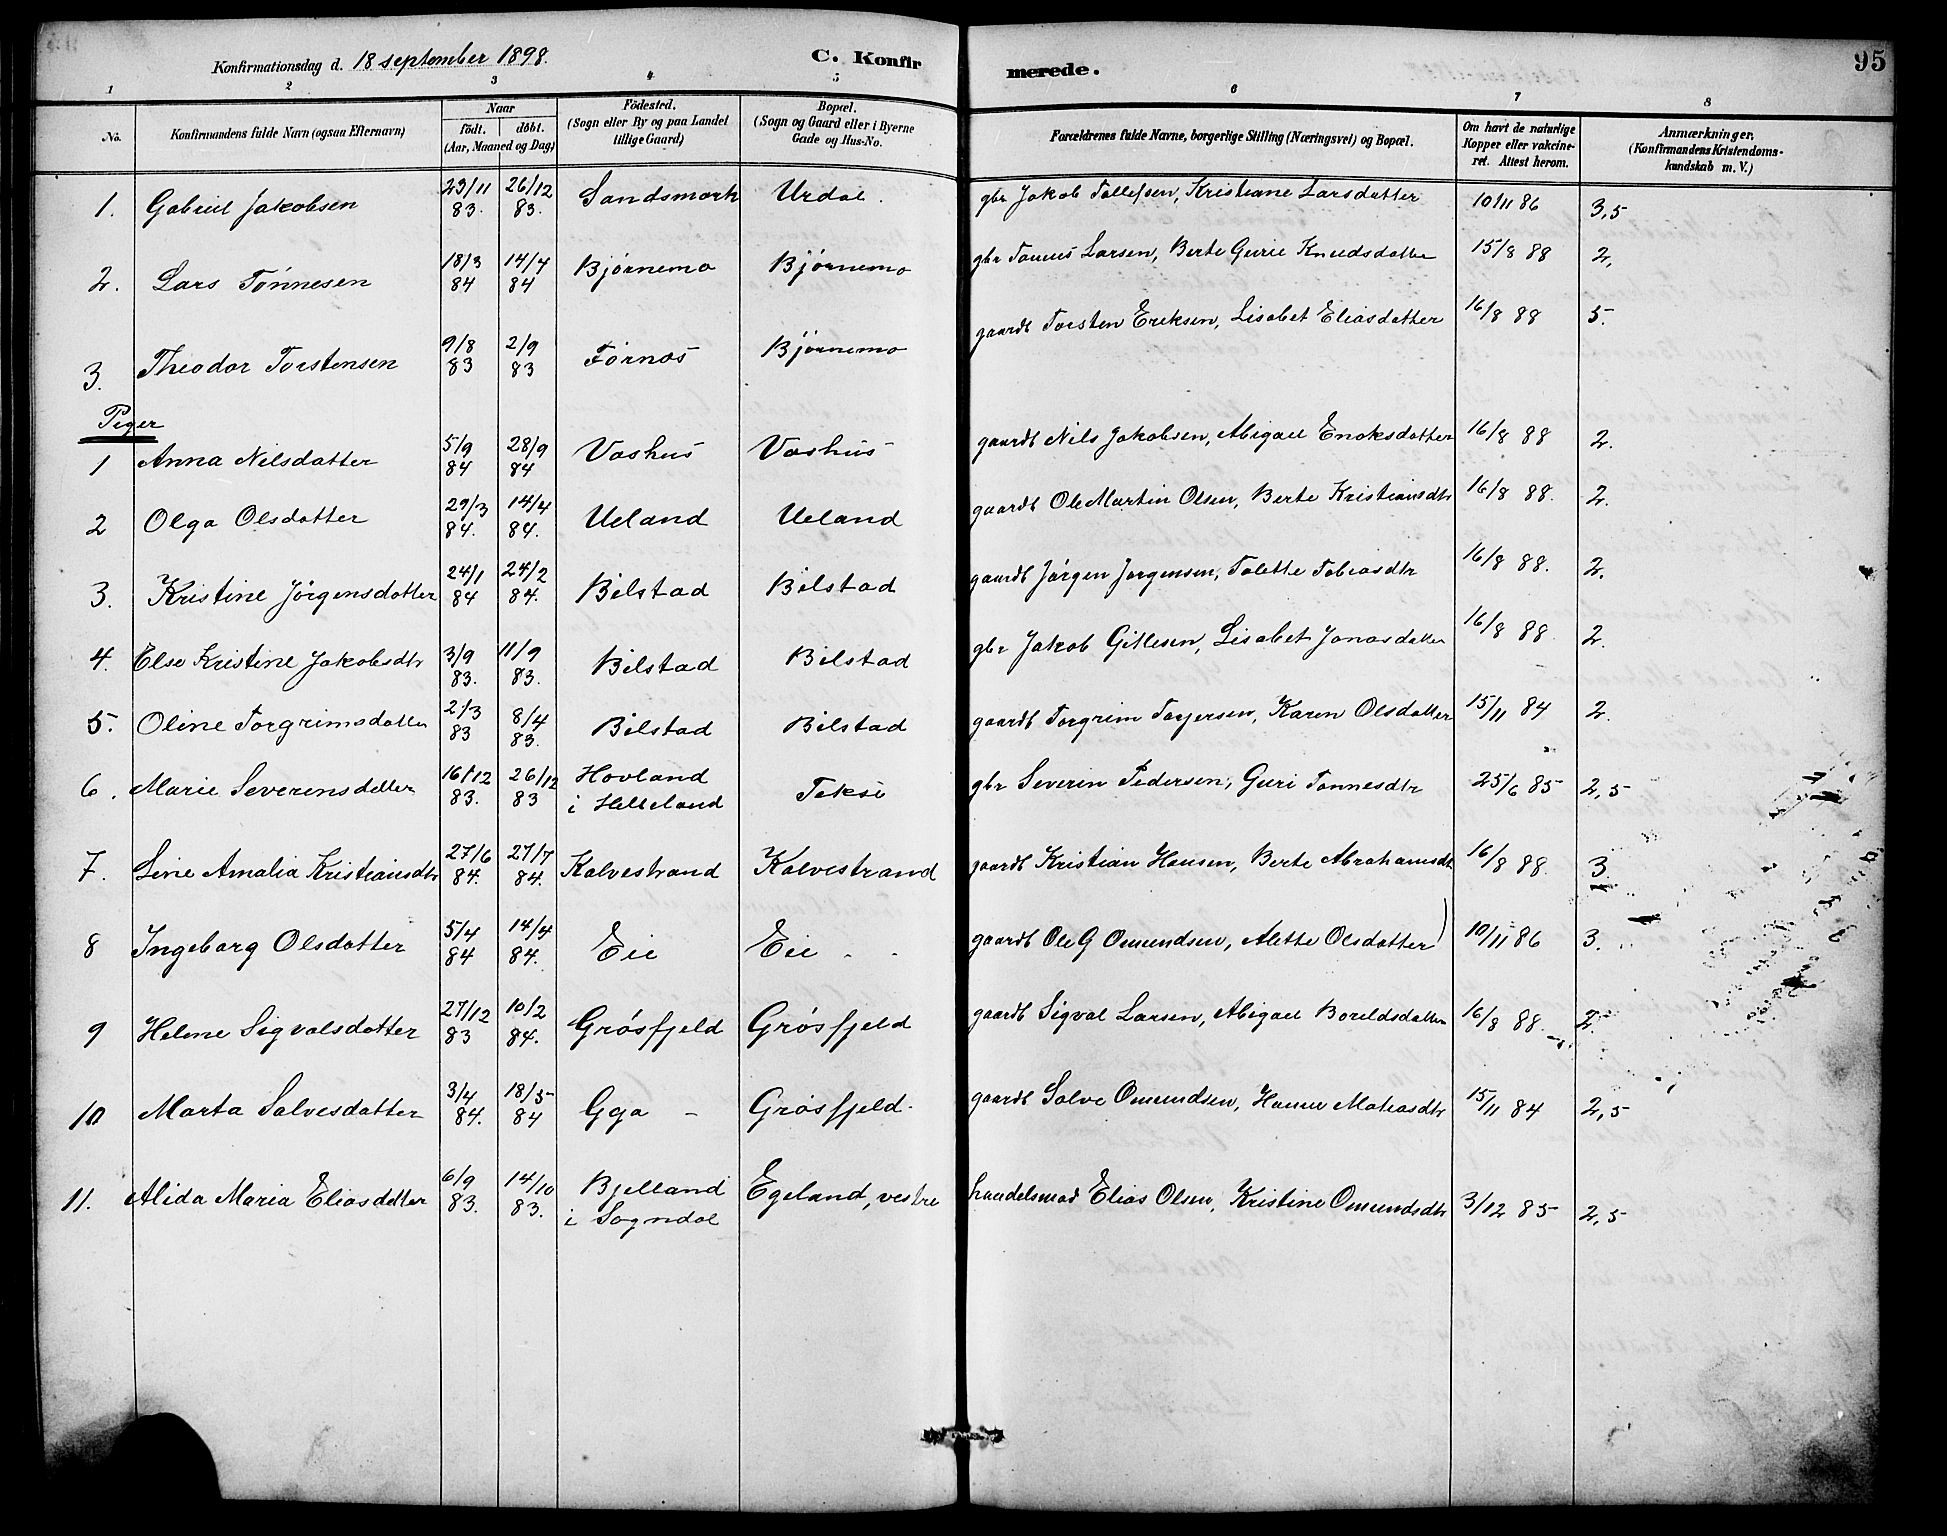 Konfirmationsdag d. 18 september 1898.
C. Konfirmerede.
95
1 2 3 4 5 6 7 8
No. Konfirmandens fulde Navn (ogsaa Efternavn) Naar født. døbt. (Aar, Maaned og Dag) Fødested. (Sogn eller By og paa Landet tillige Gaard) Bopæl. (Sogn og Gaard eller i Byerne Gade og Hus-No. Forældrenes fulde Navne, borgerlige Stilling (Næringsvei) og Bopæl. Om havt de naturlige Kopper eller vakcineret. Attest herom. Anmærkninger. (Konfirmandens Kristendomskundskab m. V.)
1. Gabriel Jakobsen 29/11 83. 26/12 83. Sandsmark Urdal. gbr Jakob Tollefsen, Kristiane Larsdatter 10/11 86 3,5
2. Lars Tønnesen 18/3 84 14/4 84 Bjørnemo Bjørnemo gbr Tønnes Larsen, Berte Gurie Knudsdatter 15/8 88 2,
3. Theodor Torstensen 9/8 83 2/9 83 Tørnos Bjørnemo gaardb Torsten Eriksen, Lisabet Eliasdatter 16/8 88 5.
Piger
1 Anna Nilsdatter 5/9 84 28/9 84 Vashus Vashus gaardb Nils Jakobsen, Abigael Enoksdatter 16/8 88 2.
2 Olga Olsdatter 29/3 84. 14/4 84. Ueland Ueland gaardb Ole Martin Olsen, Berte Kristiansdtr 16/8 88. 2.
3. Kristine Jørgensdatter 24/1 84 24/2 84. Bilstad Bilstad gaardb Jørgen Jørgensen, Tolette Tobiasdtr 16/8 88. 2.
4. Else Kristine Jakobsdtr 3/9 83. 11/9 83. Bilstad Bilstad gbr Jakob Gitlesen, Lisabet Jonasdatter 16/8 88. 2.
5. Oline Torgrimsdatter 2/3 83 8/4 83. Bilstad Bilstad gaardb Torgrim Torjersen, Karen Olsdatter 15/11 84 2.
6. Marie Severinsdatter 16/12 83. 26/12 83 Hovland i Helleland Tekse gbr Severin Pedersen, Guri Tønnesdtr 25/6 85 2,5
7. Line Amalia Kristiansdtr 27/6 84. 27/7 84. Kalvestrand Kalvestrand gaardb Kristian Hansen, Berte Abrahamsdt 16/8 88. 3
8 Ingeborg Olsdatter 5/4 84 14/4 84. Eie Eie gaardb Ole G Omundsen, Alette Olsdatter) 10/11 86 3.
9 Helene Sigvalsdatter 27/12 83 10/2 84. Grøsfjeld Grøsfjeld gaardb Sigval Larsen, Abigael Boreldsdatter 16/8 88. 2.
10 Marta Salvesdatter 3/4 84. 18/5 84 Gya - Grøsfjeld. gaardb Salve Omundsen, Hanne Matiasdtr 15/11 84 2,5
11. Alida Maria Eliasdatter 6/9 83. 14/10 83. Bjelland i Sogndal Egeland, vestre handelsmad Elias Olsen, Kristine Omundsdtr 3/12 85 2,5